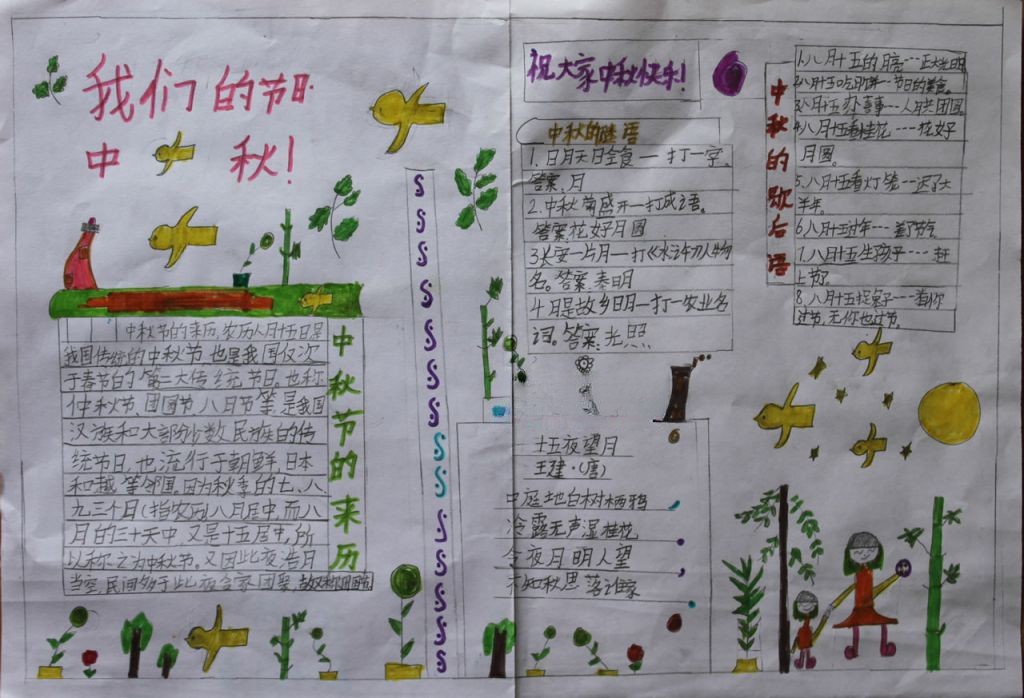 我们的节日
中秋!
中秋节的来历
中秋节的来历,农历八月十五日是
我国传统的中秋节,也是我国仅次
于春节日的第二大传统节日。也称
仲秋节、团圆节、八月节等,是我国
汉族和大部分少数民族的传
统节日,也流行于朝鲜、日本
和越等邻国。因为秋季的七、八
九三个月(指农历)八月居中,而八
月的三十天中,又是十五居中,所
以称之为中秋节。又因此夜浩月
当空,民间多于此夜合家团聚,故又称团圆节
祝大家中秋快乐!
中秋的谜语
1.日月天日全食一打一字。
答案.月
2.中秋菊盛开一打成语。
答案花好月圆
3长安一片月一打《水浒》人物
名。答案.秦明
4月是故乡明一打一农业名
词。答案.光照
十五夜望月
王建·(唐)
中庭地白树栖鸦
冷露无声湿桂花
今夜月明人望
不知秋思落谁家
中秋的歇后语
1.八月十五的月亮---正大光明
2.八月十五吃月饼---节日的美食。
3.八月十五办喜事---人月共团圆
4.八月十五看桂花----花好
月圆。
5.八月十五看灯笼---迟了大
半年。
6.八月十五过年---差了节气
7.八月十五生孩子----赶
上节了。
8.八月十五捉兔子---有你
过节,无你也过节。